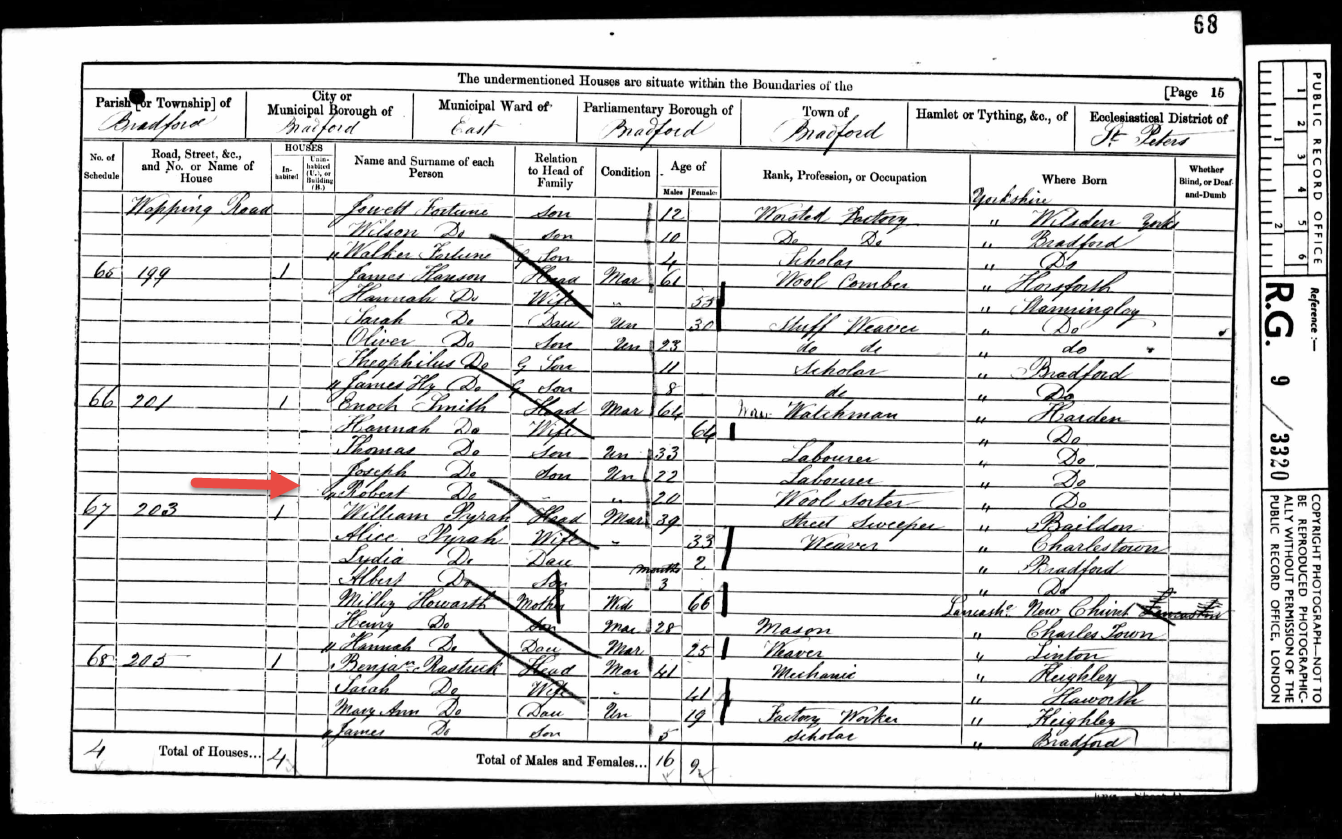 68
The undermentioned Houses are situate within the Boundaries of the
[Page 15
Parish [or Township] of
Bradford
City or Municipal Borough of
Bradford
Municipal Ward of
East
Parliamentary Borough of
Bradford
Town of
Bradford
Hamlet or Tything, &c., of
Ecclesiastical District of
St. Peters
No. of Schedule
Road, Street, &c., and No. or Name of House
HOUSES
In-habited
Unin-habited (U.), or Building (B.)
Name and Surname of each Person
Relation to Head of Family
Condition
Age of
Males
Females
Rank, Profession, or Occupation
Where Born
Whether Blind, or Deaf-and-Dumb
Yorkshire
Wapping Road Jowett Fortune Son 12 Worsted Factory " Wilsden Yorks
Wilson Do Son 10 Do Do " Bradford
Walker Fortune G Son 4 Scholar " Do
65 199 1 James Hanson Head Mar 61 Wool Comber " Horsforth
Hannah Do Wife " 55 " Stanningley
Sarah Do Dau Un 30 Stuff Weaver " Do
Oliver Do Son Un 23 do do " do
Theophilus Do G Son 11 Scholar " Bradford
James Hy Do G Son 8 do " Do
66 201 1 Enoch Smith Head Mar 64 Watchman " Harden
Hannah Do Wife 64 " Do
Thomas Do Son Un 33 Labourer " Do
Joseph Do Son Un 22 Labourer " Do
Robert Do " " 20 Wool Sorter " Do
67 203 1 William Pyrah Head Mar 39 Street Sweeper " Baildon
Alice Pyrah Wife " 33 Weaver " Charlestown
Lydia Do Dau 2 " Bradford
Albert Do Son months 3 " Do
Milly Howarth Mother Wid 66 Lancashe New Church
Henry Do Son Mar 28 Mason " Charles Town
Hannah Do Dau Mar 25 Weaver " Linton
68 205 1 Benja Rastrick Head Mar 41 Mechanic " Keighley
Sarah Do Wife " 41 " Haworth
Mary Ann Do Dau Un 19 Factory Worker " Keighley
James Do Son 5 Scholar " Bradford
4 Total of Houses... 4 Total of Males and Females... 16 9
PUBLIC RECORD OFFICE
1 2 3 4 5 6
1 2
Reference :—
R.G. 9 / 3320
COPYRIGHT PHOTOGRAPH—NOT TO BE REPRODUCED PHOTOGRAPHIC-ALLY WITHOUT PERMISSION OF THE PUBLIC RECORD OFFICE, LONDON